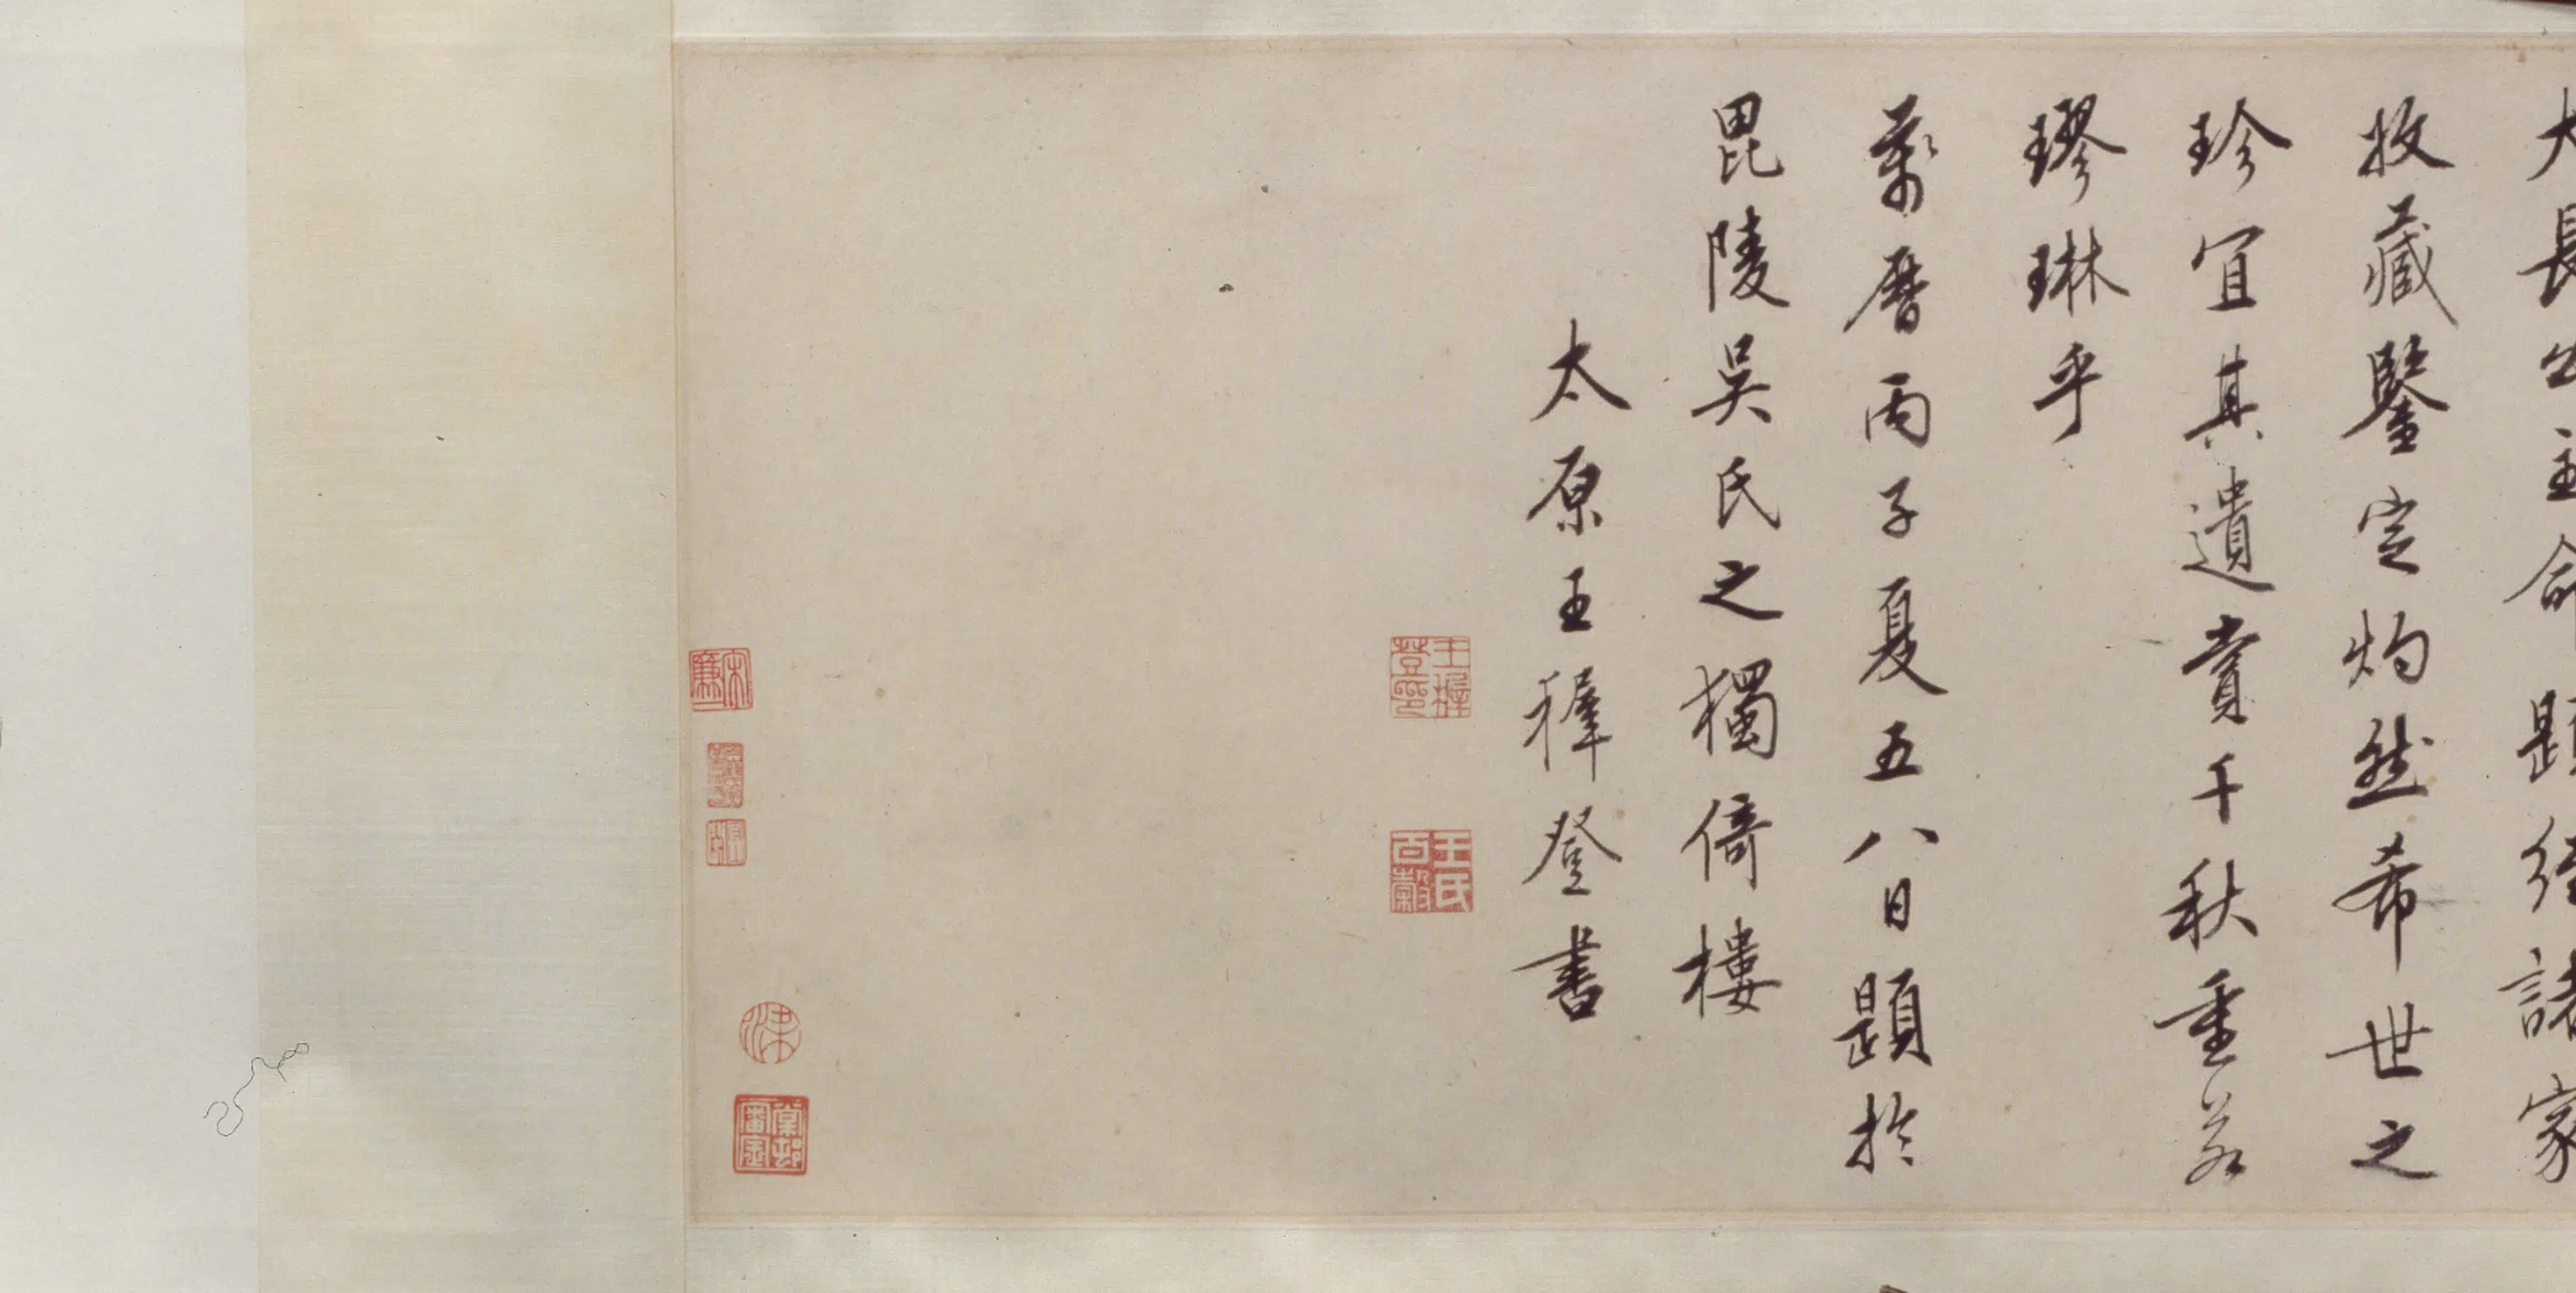 大長公主命題 經諸家
收藏鑒定灼然希世之
珍宜其遺賞千秋重若
璆琳乎
萬曆丙子夏五八日題於
毘陵吳氏之獨倚樓
太原王穉登書
王穉登印
王氏百穀
宋廉
棠邨審定